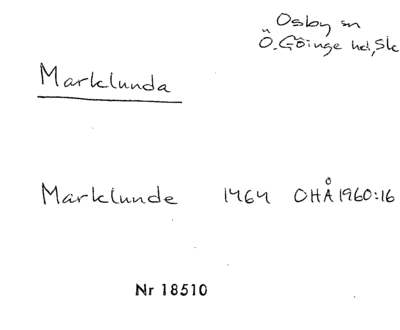 Osby sn
Ö. Göinge hd, Sk
Marklunda
Marklunde 1464 OHÅ 1960:16
Nr 18510